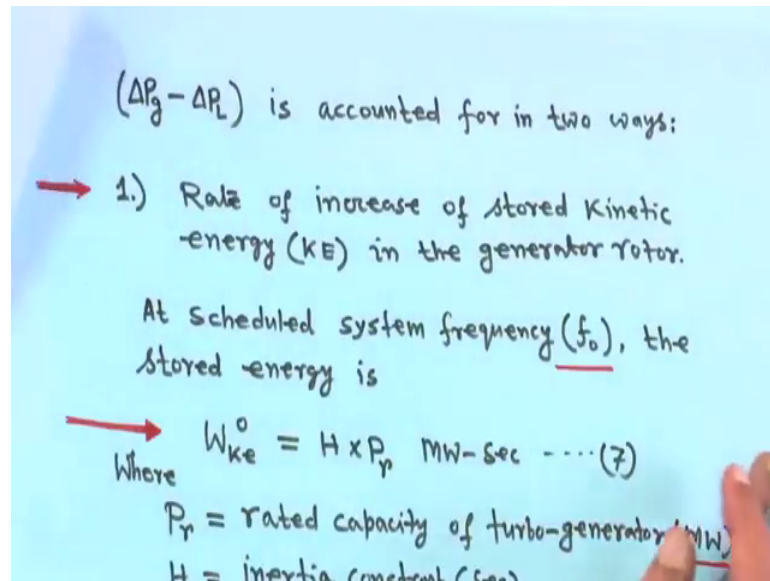 (ΔPg - ΔPL) is accounted for in two ways:
1.) Rate of increase of stored Kinetic
energy (KE) in the generator rotor.
At scheduled system frequency (f₀), the
stored energy is
W⁰Ke = H × Pr MW-Sec ----(7)
Where
Pr = rated capacity of turbo-generator (MW)
H = inertia constant (Sec)